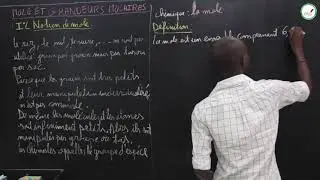 MOLE ET GRANDEURS MOLAIRES
I°/ Notion de mole
le riz, le mil, le sucre, ... n'est pas
utilisé grain par grain mais par
par sac.
Parce que les grains sont très petits
et leur manipulation individuelle
n'est pas commode.
De même les molécules et les atomes
sont infiniment petits. Ils
manipulés par groupe
chimiste appelle le groupe d'espèce
chimique : la mole
Définition
la mole est un ensemble comprenant 6,